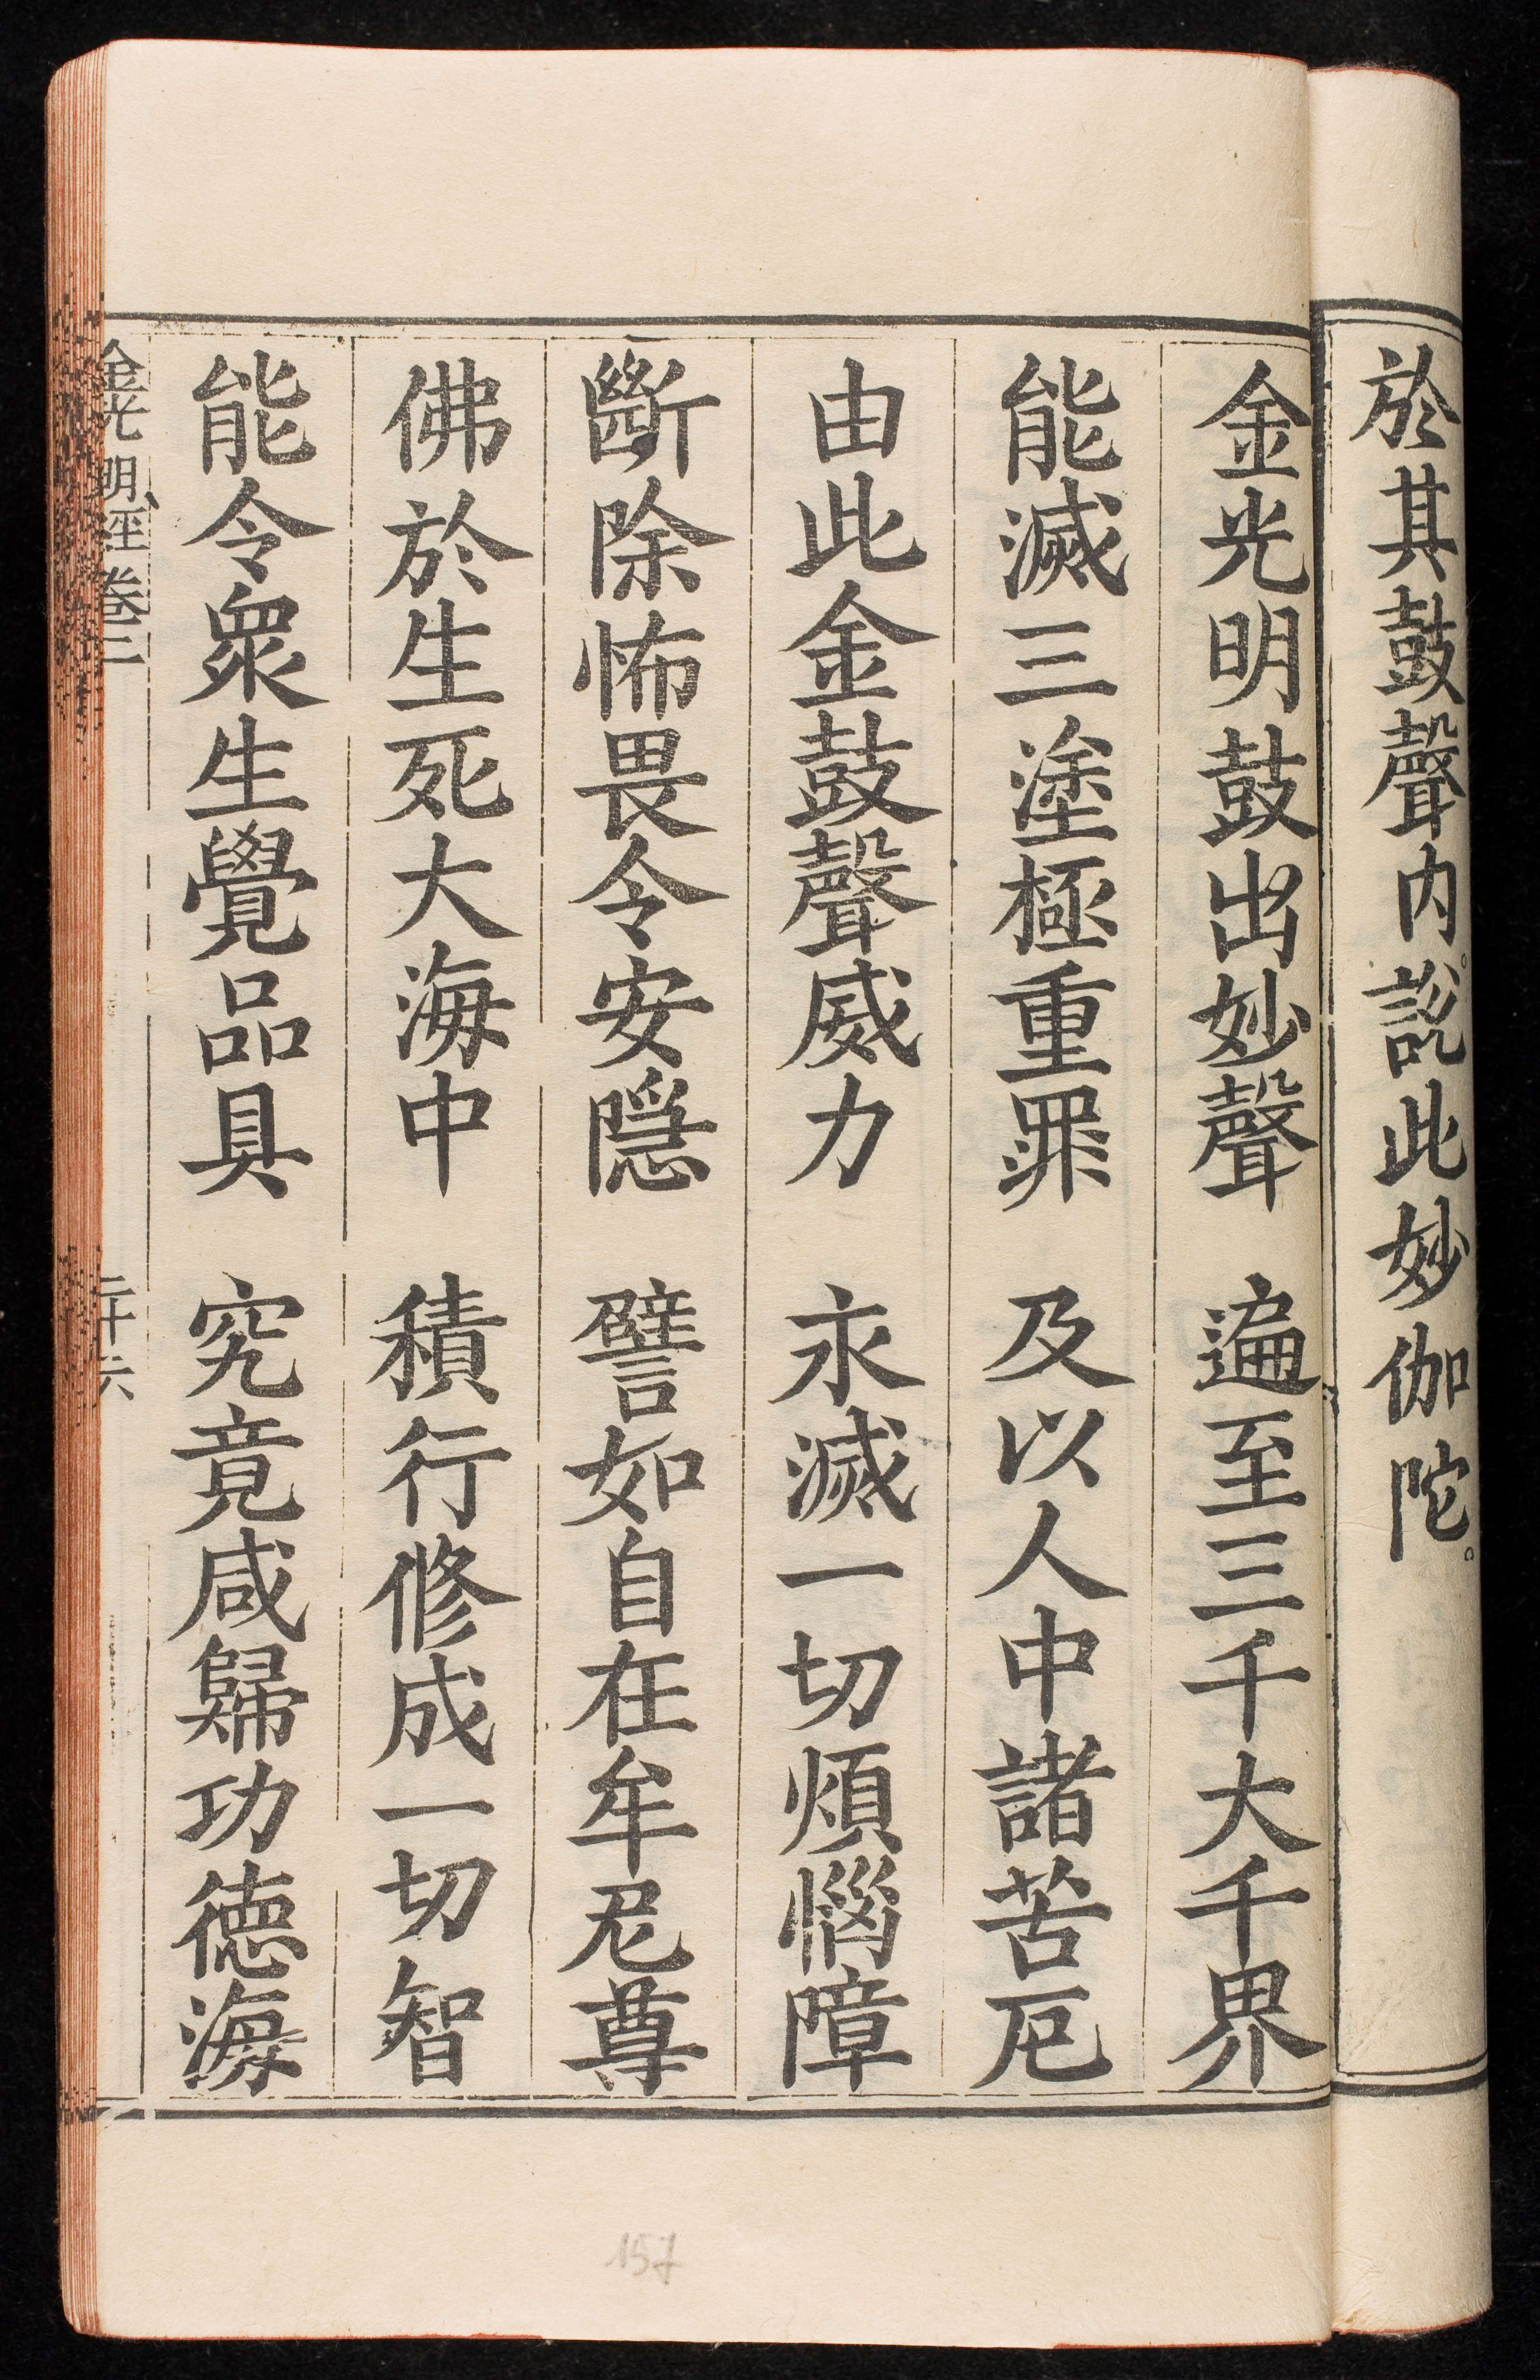 於其鼓聲內。說此妙伽陀。
金光明鼓出妙聲　遍至三千大千界
能滅三塗極重罪　及以人中諸苦厄
由此金鼓聲威力　永滅一切煩惱障
斷除怖畏令安隱　譬如自在牟尼尊
佛於生死大海中　積行修成一切智
能令眾生覺品具　究竟咸歸功德海
金光明經卷二　二十六
157